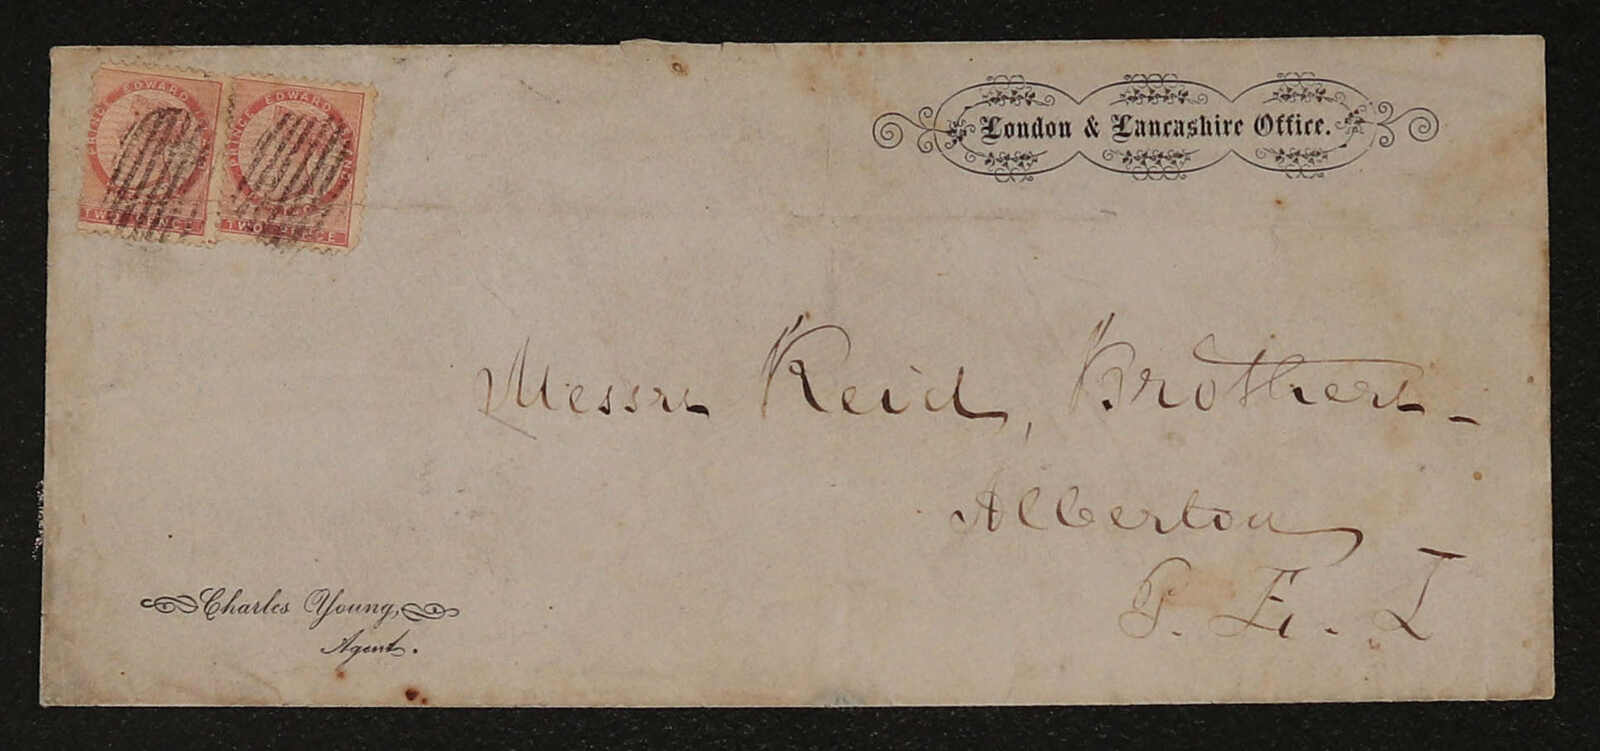 PRINCE EDWARD
TWO PENCE
PRINCE EDWARD
TWO PENCE
London & Lancashire Office.
Messrs Reid, Brothers -
Alberton
P. E. I
Charles Young,
Agent.